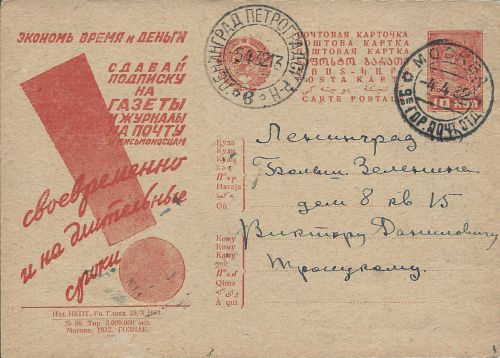 ЭКОНОМЬ ВРЕМЯ И ДЕНЬГИ
СДАВАЙ
ПОДПИСКУ
НА
ГАЗЕТЫ
И ЖУРНАЛЫ
НА ПОЧТУ
И ПИСЬМОНОСЦАМ
своевременно
и на длительные
сроки
Изд. НКПТ. Уп. Главл. 25/X 1931
№ 98 Тир. 3.000.000 экз.
Москва. 1932. ГОЗНАК.
ЛЕНИНГРАД ПЕТРОГРАДСК. Р. Н.
5.4.32.13
8
ПОЧТОВАЯ КАРТОЧКА
ПОШТОВА КАРТКА
ПАШТОВАЯ КАРТКА
POSTA KARTЬ
CARTE POSTALE
МОСКВА
-4.4.32
ГОР. ПОЧТ. ОТД.
10 КОП
Куда
Куди
Куды
Haraja
Où
Кому
Кому
Каму
Qima
A qui
Ленинград
Больш. Зеленина
дом 8 кв 15
Виктору Даниловичу
Троицкому